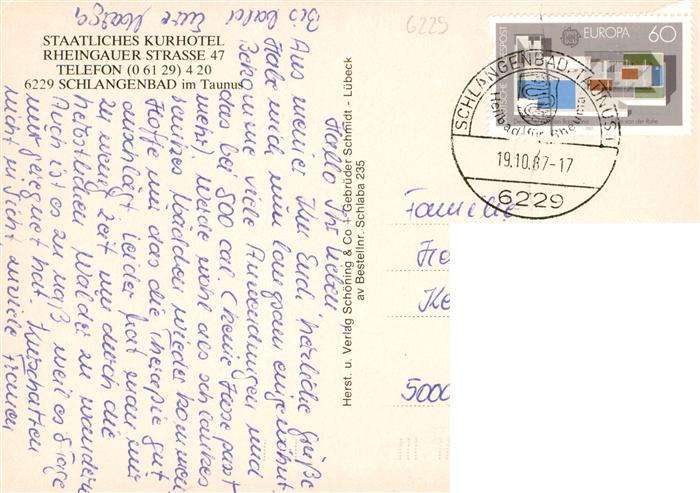 6225
STAATLICHES KURHOTEL
RHEINGAUER STRASSE 47
TELEFON (0 61 29) 4 20
6229 SCHLANGENBAD im Taunus
Hallo Ihr Lieben
Aus meiner Kur Euch herzliche Grüße
Habe mich nun langsam eingewöhnt
Bekomme viele Anwendungen und
das bei 800 cal. (keine Hose passt
mehr) werde wohl als schlankes
Mädchen wieder kommen
Hoffe nur das die Therapie gut
anschlägt leider hat man nur
zu wenig Zeit um durch die
herbstlichen Wälder zu wandern
Auch ist es zu naß weil es 8 Tage
nur geregnet hat. Kurschatten
nicht in Sicht, zuviele Frauen
Bis bald Eure
Herst. u. Verlag Schöning & Co + Gebrüder Schmidt - Lübeck
av Bestellnr. Schlaba 235
DEUTSCHE BUNDESPOST
EUROPA 60
SCHLANGENBAD, TAUNUS 1
Heilbad für Rheuma
19.10.87-17
6229
Familie
5000